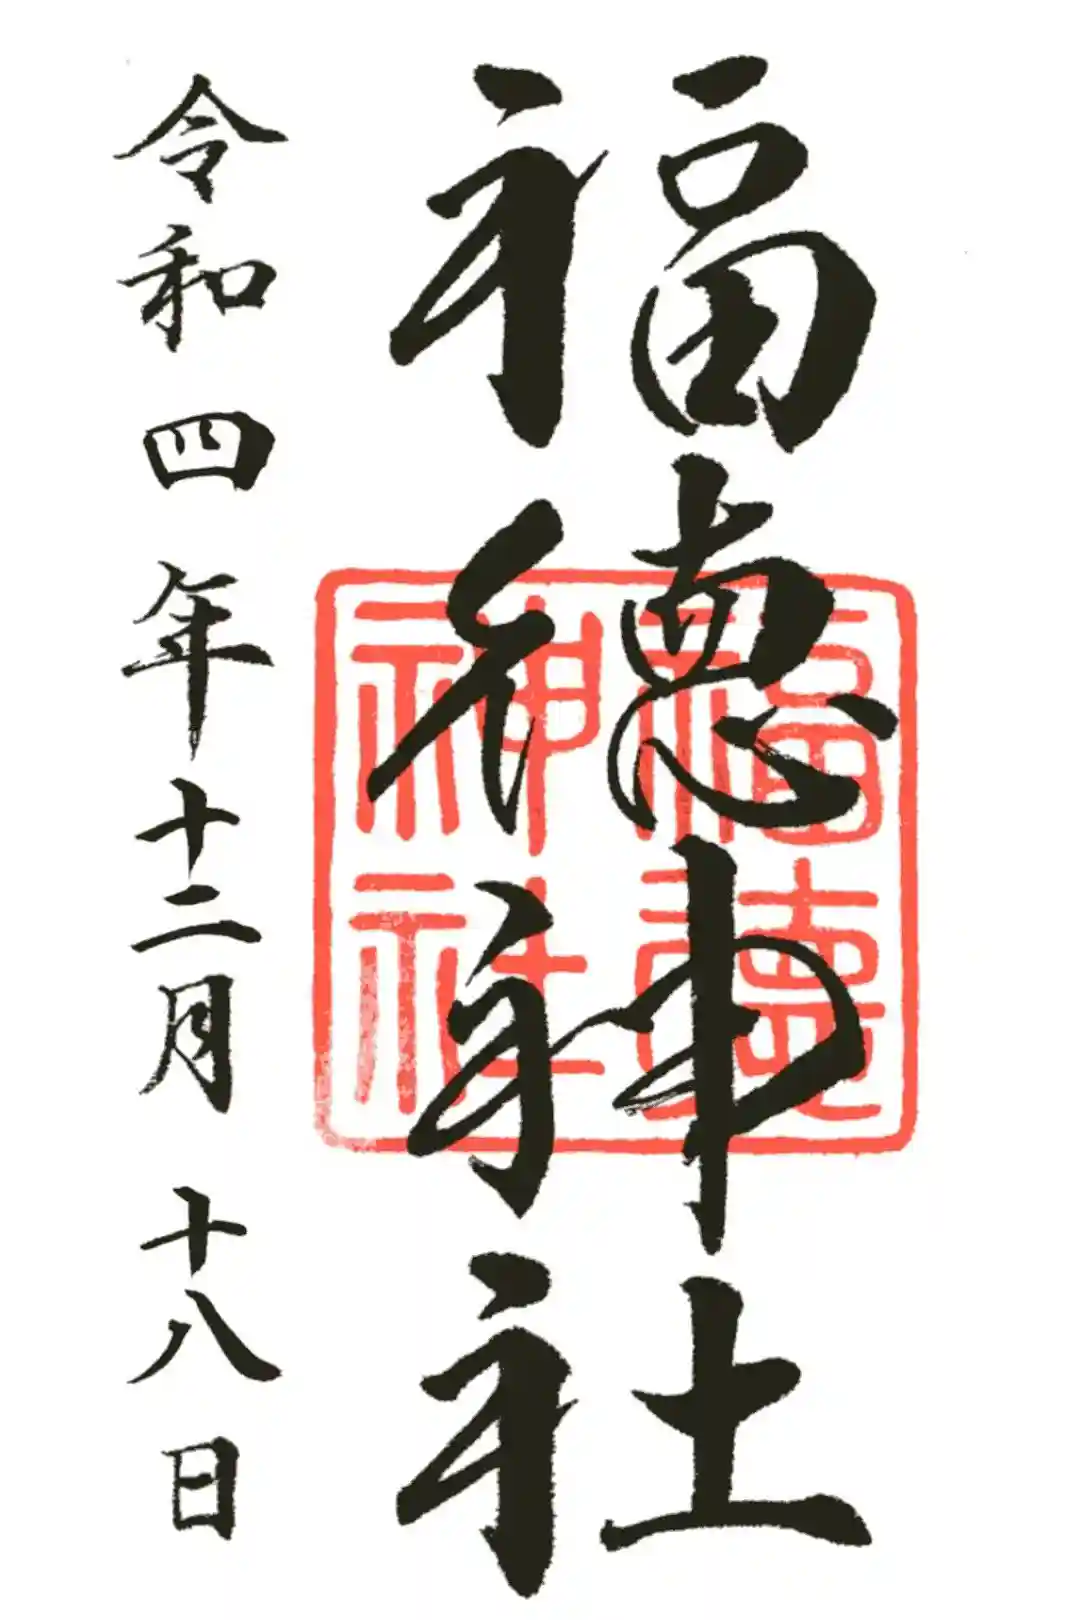 福徳神社
令和四年十二月十八日
福徳
神社